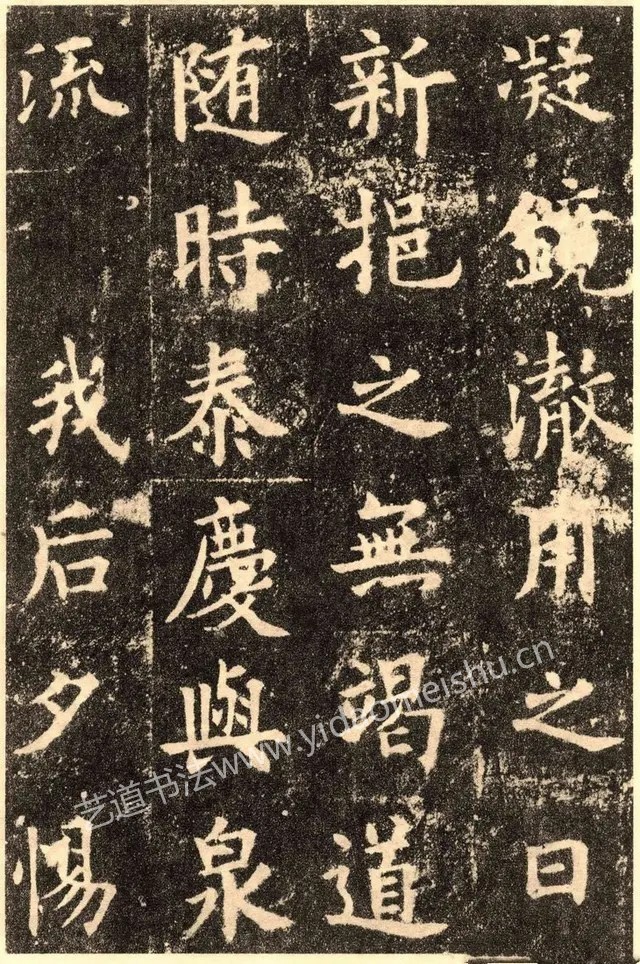 凝鏡澈用之日
新挹之無竭道
随時泰慶與泉
流 我后夕惕
艺道书法www.yidaomeishu.cn